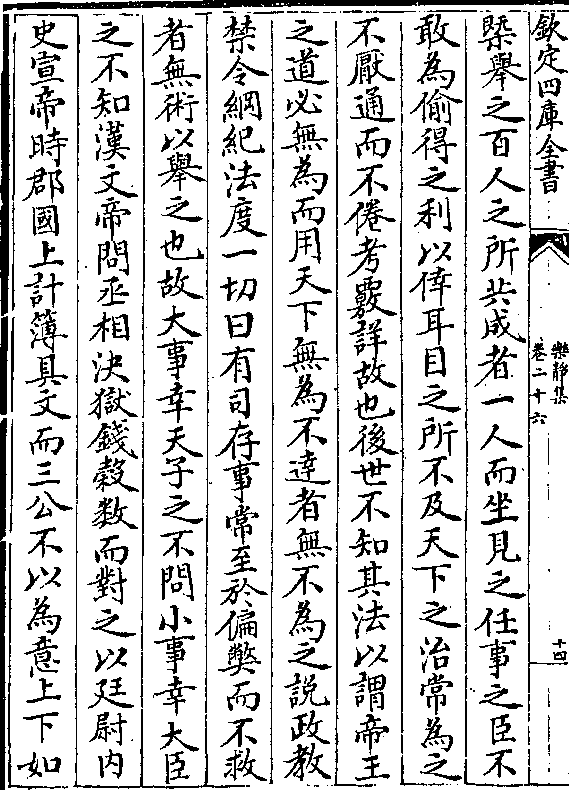 欽定四庫全書
樂靜集
卷二十六
十四
槩舉之百人之所共成者一人而坐見之任事之臣不
敢為偷得之利以倖耳目之所不及天下之治常為之
不厭通而不倦考覈詳故也後世不知其法以謂帝王
之道必無為而用天下無為不達者無不為之説政教
禁令綱紀法度一切曰有司存事常至於偏弊而不救
者無術以舉之也故大事幸天子之不問小事幸大臣
之不知漢文帝問丞相決獄錢穀数而對之以廷尉内
史宣帝時郡國上計簿具文而三公不以為意上下如